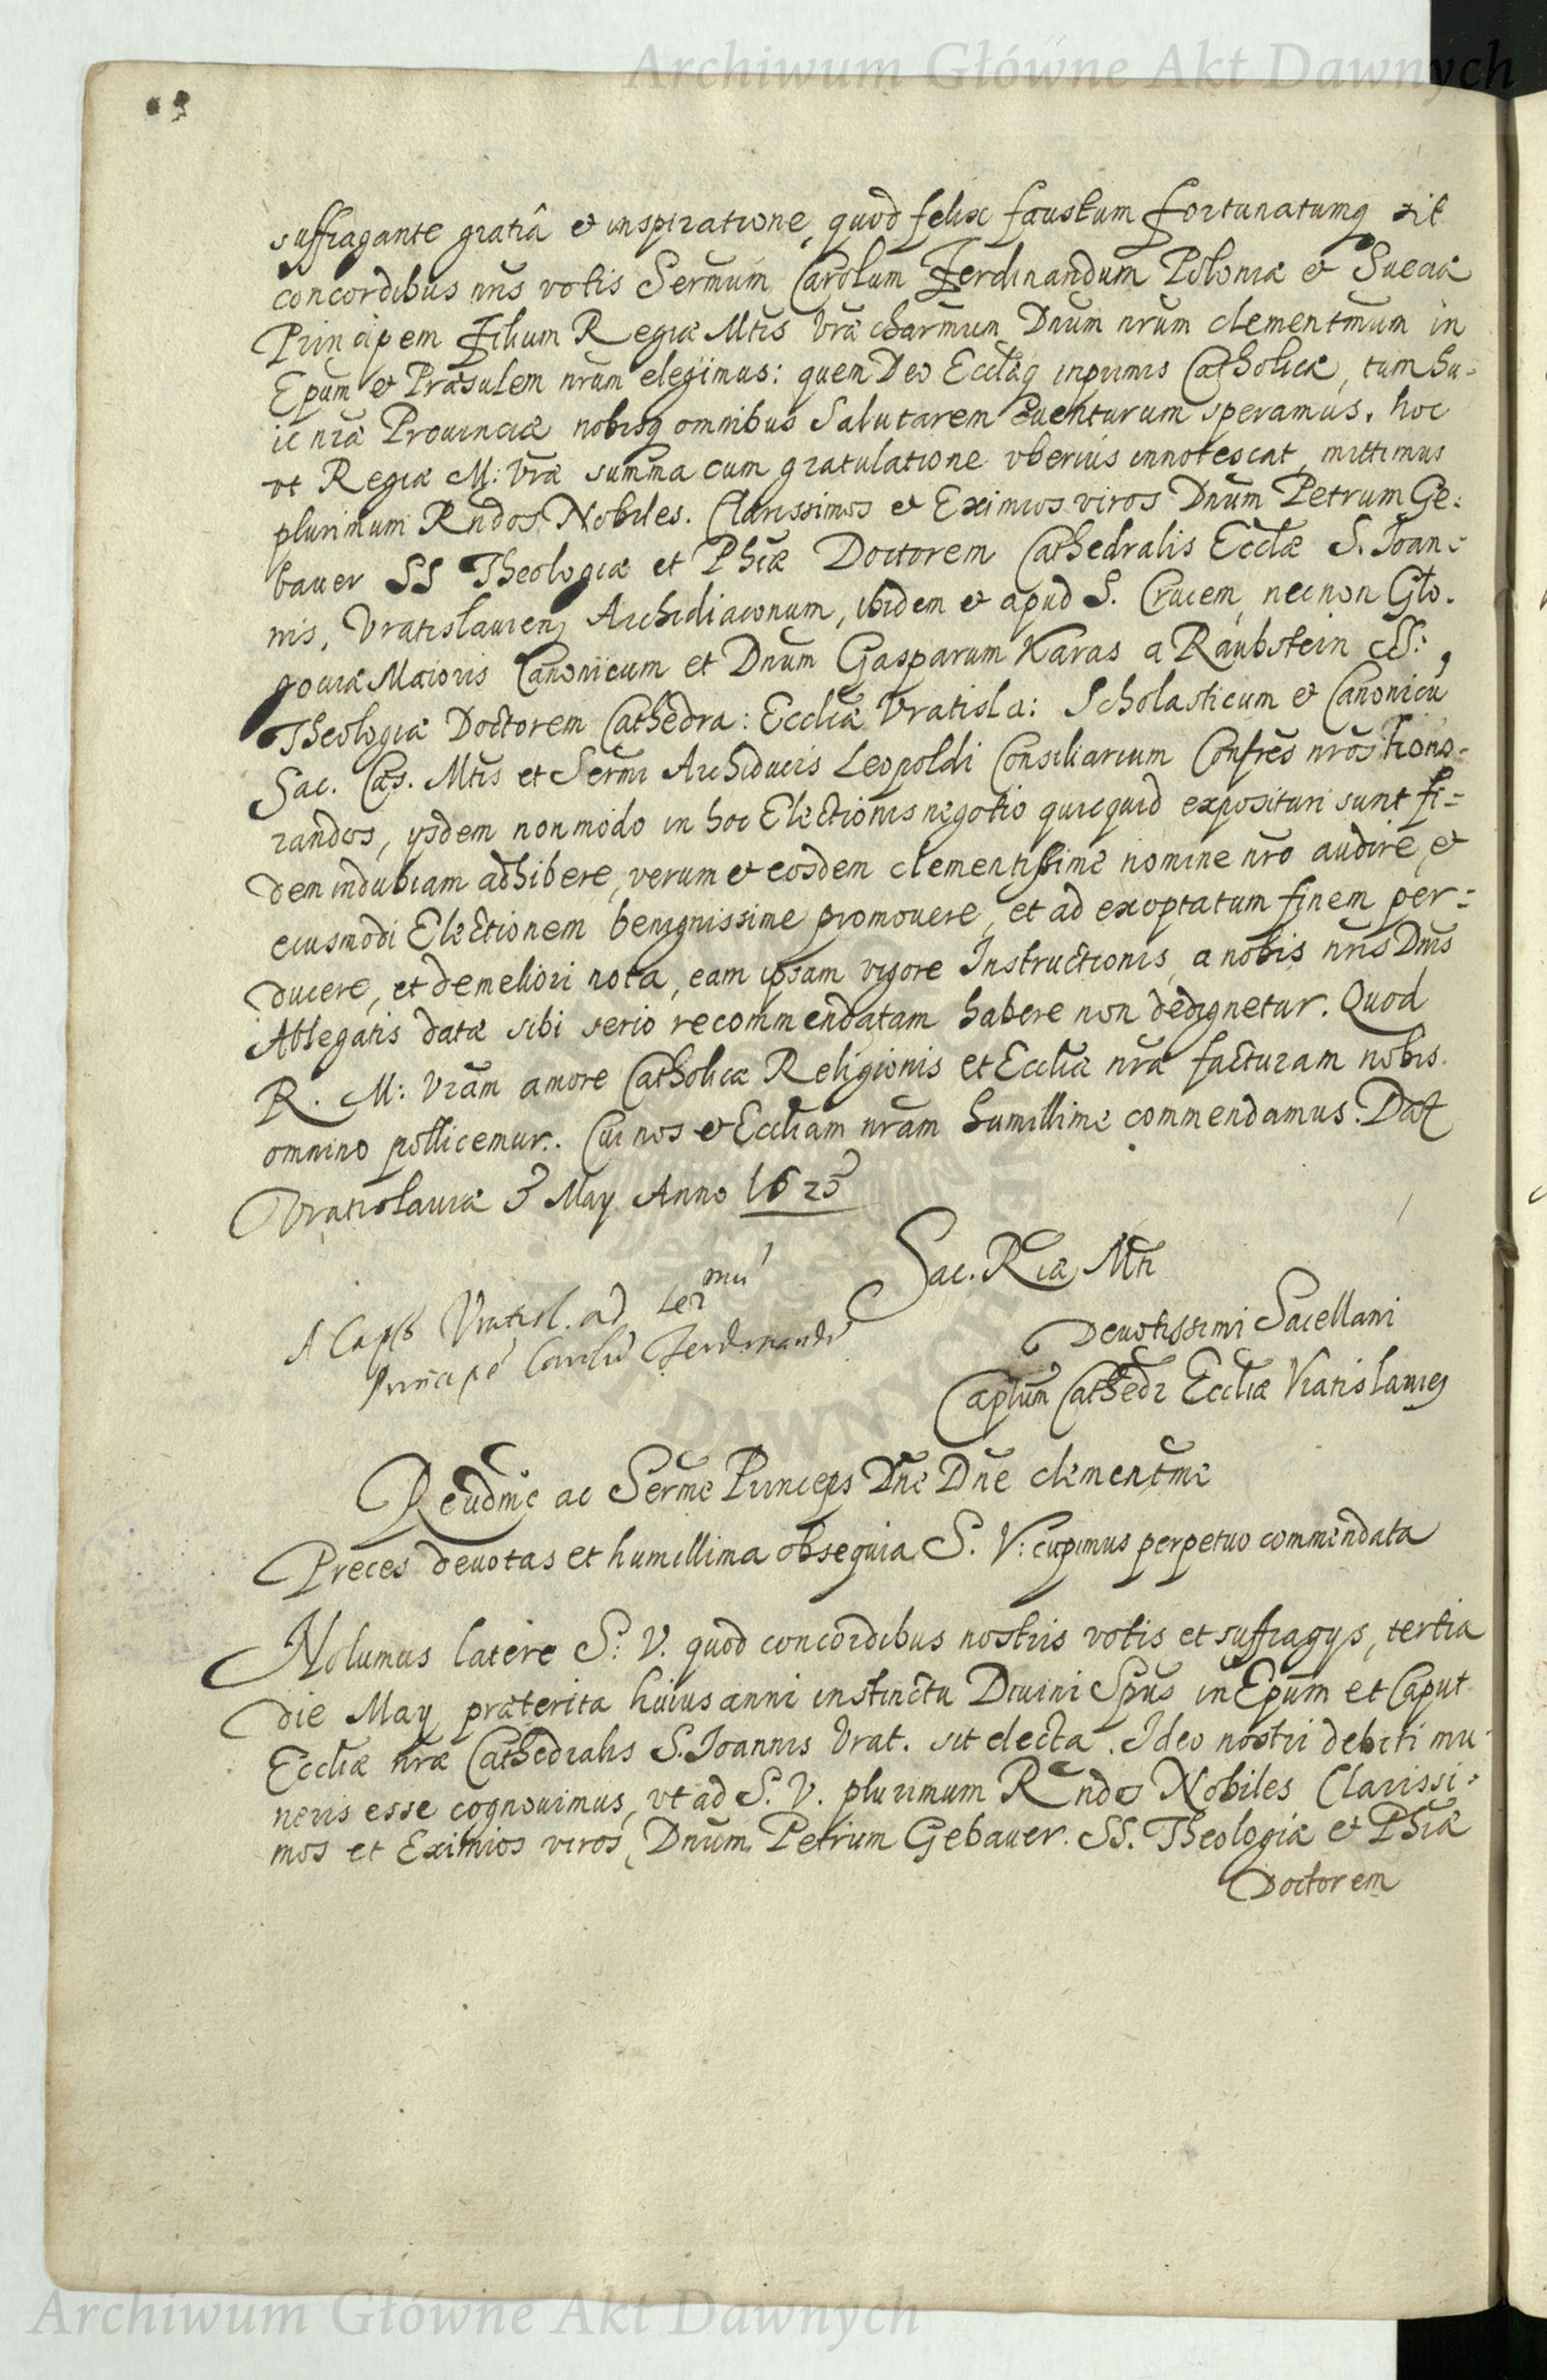 Archiwum Główne Akt Dawnych
suffragante gratiâ et inspiratione, quod felix faustum fortunatumq sit
concordibus nris votis Sermum Carolum Ferdinandum Poloniæ et Sueciæ
Principem Filium Regiæ Mtis Vræ charmum Dnum nrum clementmum in
Epum et Præsulem nrum elegimus: quem Deo Ecclæq inprimis Catholicæ, tum hu-
ic nræ Prouinciæ nobisq omnibus Salutarem euenturum speramus. hoc
vt Regiæ M: Vræ summa cum gratulatione vberius innotescat, mittimus
plurimum Rndos Nobiles. Clarissimos et Eximios viros Dnum Petrum Ge:
bauer SS Theologiæ et Phiæ Doctorem Cathedralis Ecclæ S. Ioan-
nis, Vratislauien Archidiaconum, ibidem et apud S. Crucem, necnon Glo.
gouiæ Maioris Canonicum et Dnum Gasparum Karas a Raubstein SS:
Theologiæ Doctorem Cathedra: Eccliæ Vratisla: Scholasticum et Canonicu
Sac. Cæs. Mtis et Sermi Archiducis Leopoldi Consiliarium Confres nros hono-
randos, ysdem non modo in hoc Electionis negotio quicquid exposituri sunt fi=
dem indubiam adhibere, verum et eosdem clementissime nomine nro audire, et
eiusmodi Electionem benignissime promouere, et ad exoptatum finem per=
ducere, et de meliori nota, eam ipsam vigore Instructionis, a nobis nris Dnis
Ablegatis datæ sibi serio recommendatam habere non dedignetur. Quod
R. M: Vram amore Catholicæ Religionis et Eccliæ nræ facturam nobis
omnino pollicemur. Cui nos et Eccliam nram humillime commendamus. Dat
Vratislauiæ 3 May Anno 1625
Sac. Riæ Mti
Deuotissimi Sacellani
Caplum Cathedr Eccliæ Vratislauien
A Caplo Vratisl. ad Sermu
Principe Carolu Ferdinandu
Reudme ac Serme Princeps Dne Dne clementme
Preces deuotas et humillima obsequia S. V: cupimus perpetuo commendata
Nolumus latere S: V. quod concordibus nostris votis et suffragys, tertia
die May præterita huius anni instinctu Diuini Spus in Epum et Caput
Eccliæ nræ Cathedralis S. Ioannis Vrat. sit electa. Ideo nostri debiti mu-
neris esse cognouimus, vt ad S. V. plurimum Rndos Nobiles Clarissi-
mos et Eximios viros, Dnum Petrum Gebauer. SS. Theologiæ et Phiæ
Doctorem
Archiwum Główne Akt Dawnych